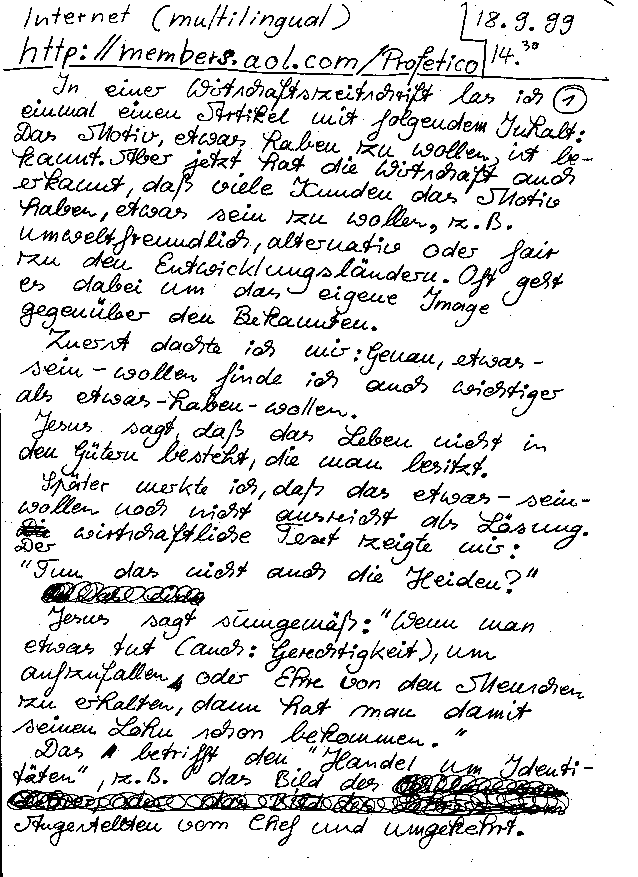 Internet (multilingual)
18.9.99
http://members.aol.com/Profetico
14.30
In einer Wirtschaftszeitschrift las ich 1
einmal einen Artikel mit folgendem Inhalt:
Das Motiv, etwas haben zu wollen, ist be-
kannt. Aber jetzt hat die Wirtschaft auch
erkannt, daß viele Kunden das Motiv
haben, etwas sein zu wollen, z.B.
umweltfreundlich, alternativ oder fair
zu den Entwicklungsländern. Oft geht
es dabei um das eigene Image
gegenüber den Bekannten.
Zuerst dachte ich mir: Genau, etwas-
sein-wollen finde ich auch wichtiger
als etwas-haben-wollen.
Jesus sagt, daß das Leben nicht in
den Gütern besteht, die man besitzt.
Später merkte ich, daß das etwas-sein-
wollen noch nicht ausreicht als Lösung.
Der wirtschaftliche Text zeigte mir:
"Tun das nicht auch die Heiden?"
Jesus sagt sinngemäß: "Wenn man
etwas tut (auch: Gerechtigkeit), um
aufzufallen, oder Ehre von den Menschen
zu erhalten, dann hat man damit
seinen Lohn schon bekommen."
Das betrifft den "Handel um Identi-
täten", z.B. das Bild des
Angestellten vom Chef und umgekehrt.